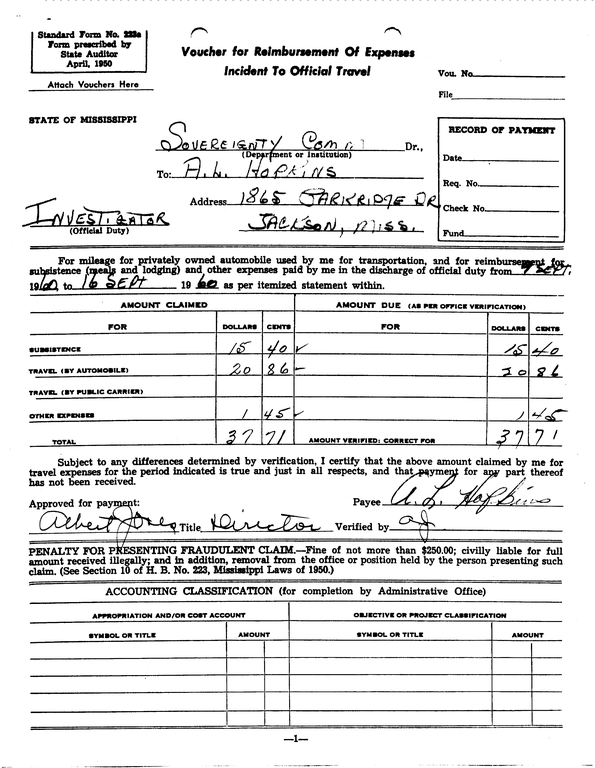 Standard Form No. 223a
Form prescribed by
State Auditor
April, 1950
Attach Vouchers Here
Voucher for Reimbursement Of Expenses
Incident To Official Travel
Vou. No.
File
STATE OF MISSISSIPPI
SOVEREIGNTY COMM Dr.,
(Department or Institution)
To: A.L. HOPKINS
Address 1865 PARKRIDGE DR
JACKSON, MISS.
INVESTIGATOR
(Official Duty)
RECORD OF PAYMENT
Date
Req. No.
Check No.
Fund
For mileage for privately owned automobile used by me for transportation, and for reimbursement for
subsistence (meals and lodging) and other expenses paid by me in the discharge of official duty from 7 SEPT,
1960 to 16 SEPT 1960 as per itemized statement within.
AMOUNT CLAIMED AMOUNT DUE (AS PER OFFICE VERIFICATION)
FOR DOLLARS CENTS FOR DOLLARS CENTS
SUBSISTENCE 15 40 15 40
TRAVEL (BY AUTOMOBILE) 20 86 20 86
TRAVEL (BY PUBLIC CARRIER)
OTHER EXPENSES 1 45 1 45
TOTAL 37 71 AMOUNT VERIFIED: CORRECT FOR 37 71
Subject to any differences determined by verification, I certify that the above amount claimed by me for
travel expenses for the period indicated is true and just in all respects, and that payment for any part thereof
has not been received.
Approved for payment: Payee A. L. Hopkins
Albert Jones Title Director Verified by aj
PENALTY FOR PRESENTING FRAUDULENT CLAIM.—Fine of not more than $250.00; civilly liable for full
amount received illegally; and in addition, removal from the office or position held by the person presenting such
claim. (See Section 10 of H. B. No. 223, Mississippi Laws of 1950.)
ACCOUNTING CLASSIFICATION (for completion by Administrative Office)
APPROPRIATION AND/OR COST ACCOUNT OBJECTIVE OR PROJECT CLASSIFICATION
SYMBOL OR TITLE AMOUNT SYMBOL OR TITLE AMOUNT
—1—